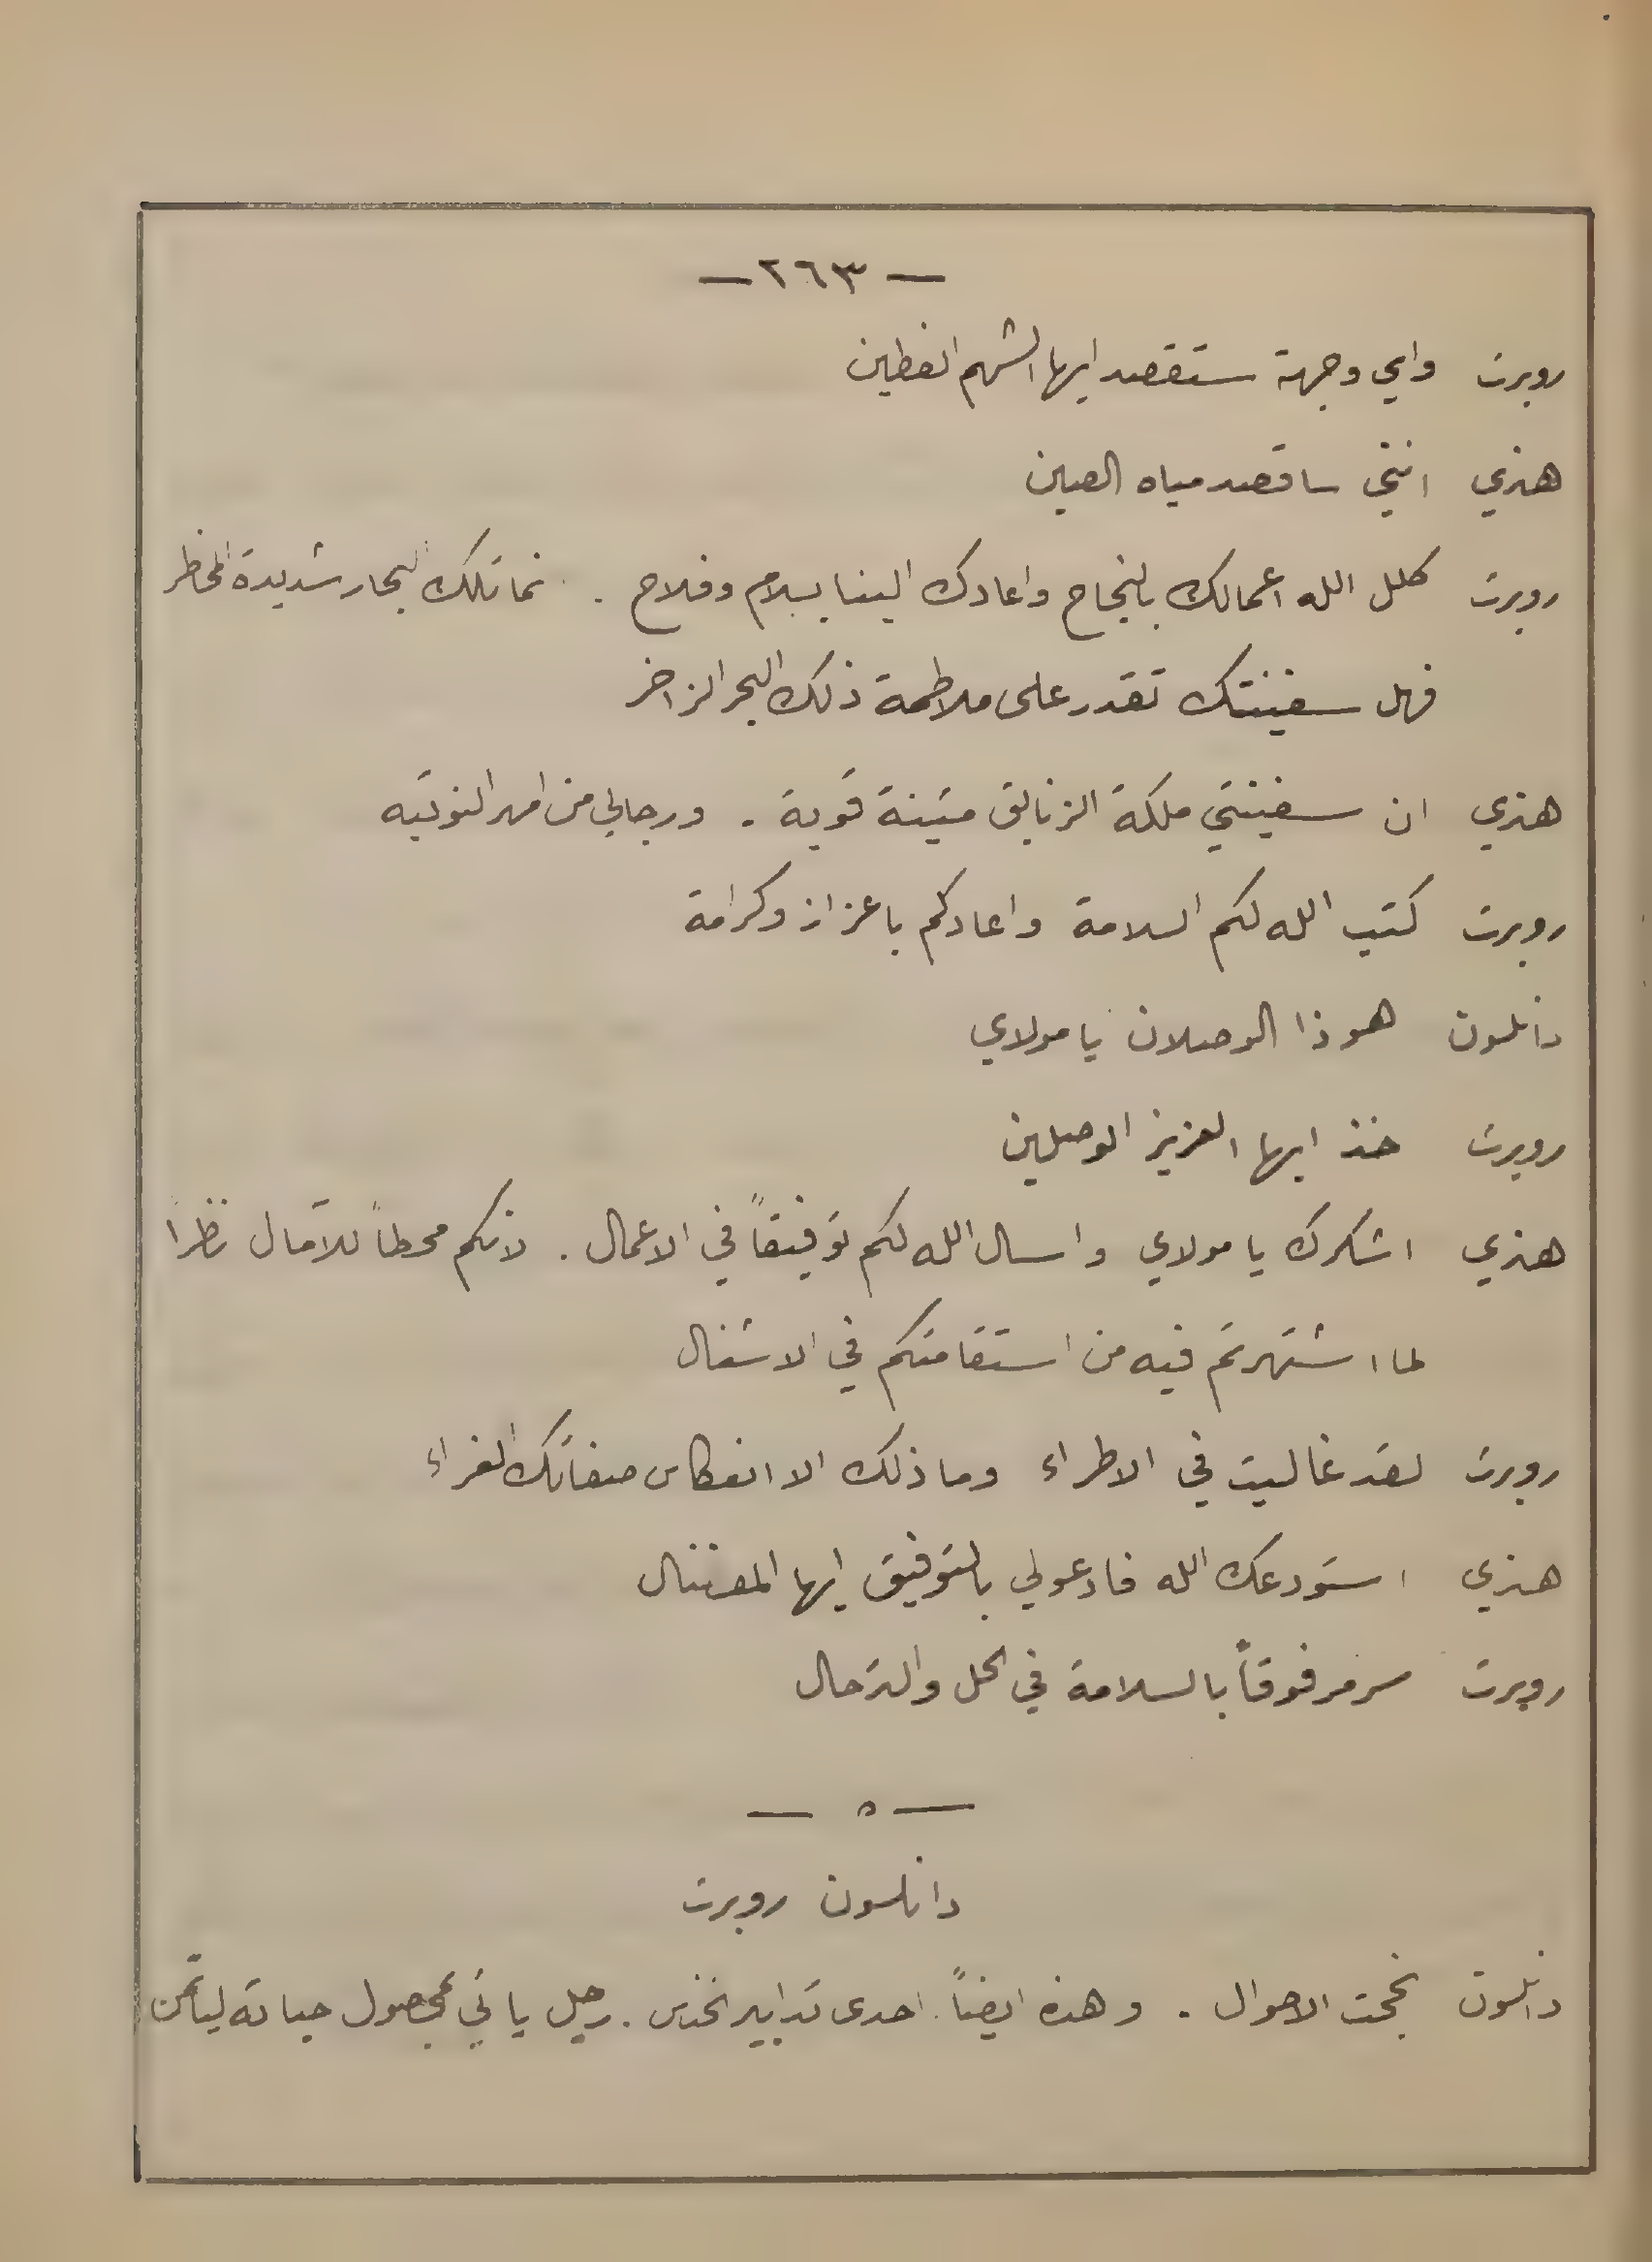 — ٢٦٣ —
روبرت واي وجهة ستقصد ايها الشهم الفطين
هنري انني ساقصد مياه الصين
روبرت كلل الله اعمالك بالنجاح واعادك الينا بسلام وفلاح . انما تلك البحار شديدة المخاطر
فهل سفينتك تقدر على ملاطمة ذلك البحر الزاخر
هنري ان سفينتي ملكة الزنابق متينة قوية . ورجالي من امهر النوتيه
روبرت كتب الله لكم السلامة واعادكم باعزاز وكرامة
دانلسون هوذا الوصلان يا مولاي
روبرت خذ ايها العزيز الوصلين
هنري اشكرك يا مولاي واسال الله لكم توفيقاً في الاعمال . لانكم محطاً للآمال نظراً
لما اشتهرتم فيه من استقامتكم في الاشغال
روبرت لقد غاليت في الاطراء وما ذلك الا انعكاس صفاتك الغراء
هنري استودعك الله فادعو لي بالتوفيق ايها المفضال
روبرت سر مرفوقاً بالسلامة في الحل والترحال
— ٥ —
دانلسون روبرت
دانلسون نجحت الاحوال . وهذه ايضاً احدى تدابير النحس . رجل ياتي بمحصول حياته ليأتمن